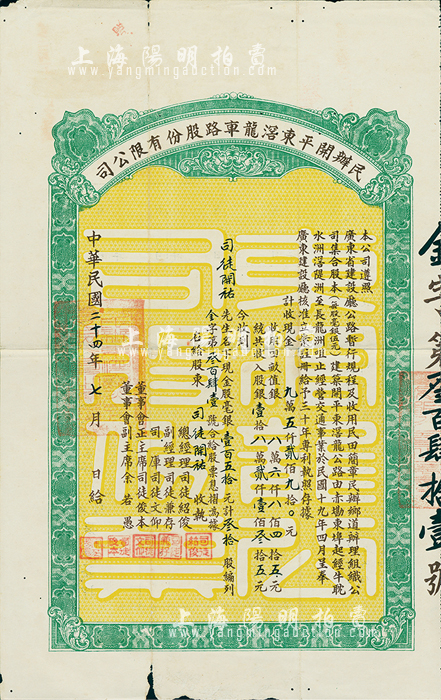 上海陽明拍賣
www.yangmingauction.com
民辦開平東滘龍車路股份有限公司
本公司遵照
廣東省建設廳公路暫行規程及收用民田簡章民辦鄉道辦理組織公
司集合股本(每股毫銀伍元)建築開平東滘龍公路由赤坎東埠起經牛
水洲滘隄洲至長龍洲止經營交通事業於民國十九年四月呈奉
廣東建設廳核准立案註冊給予三十年專利執照存據
計收現金 九萬五仟貳佰九拾〇元
收用田畝值銀 八萬六仟八佰四拾五元
統共收入股銀壹拾八萬貳仟壹佰叁拾五元
今收到
司徒關祐先生名下現金股毫銀壹百五拾元計叁拾股編列
金字第叁百肆壹號合給股票息摺為據
右給股東 司徒關祐 收執
總經理司徒紹俊
副經理司徒兼存
司庫司徒文仰
董事會正主席司徒俊本
董事會副主席余若愚
中華民國二十四年七月 日給
上海陽明拍賣
www.yangmingauction.com
上海陽明拍賣
www.yangmingauction.com